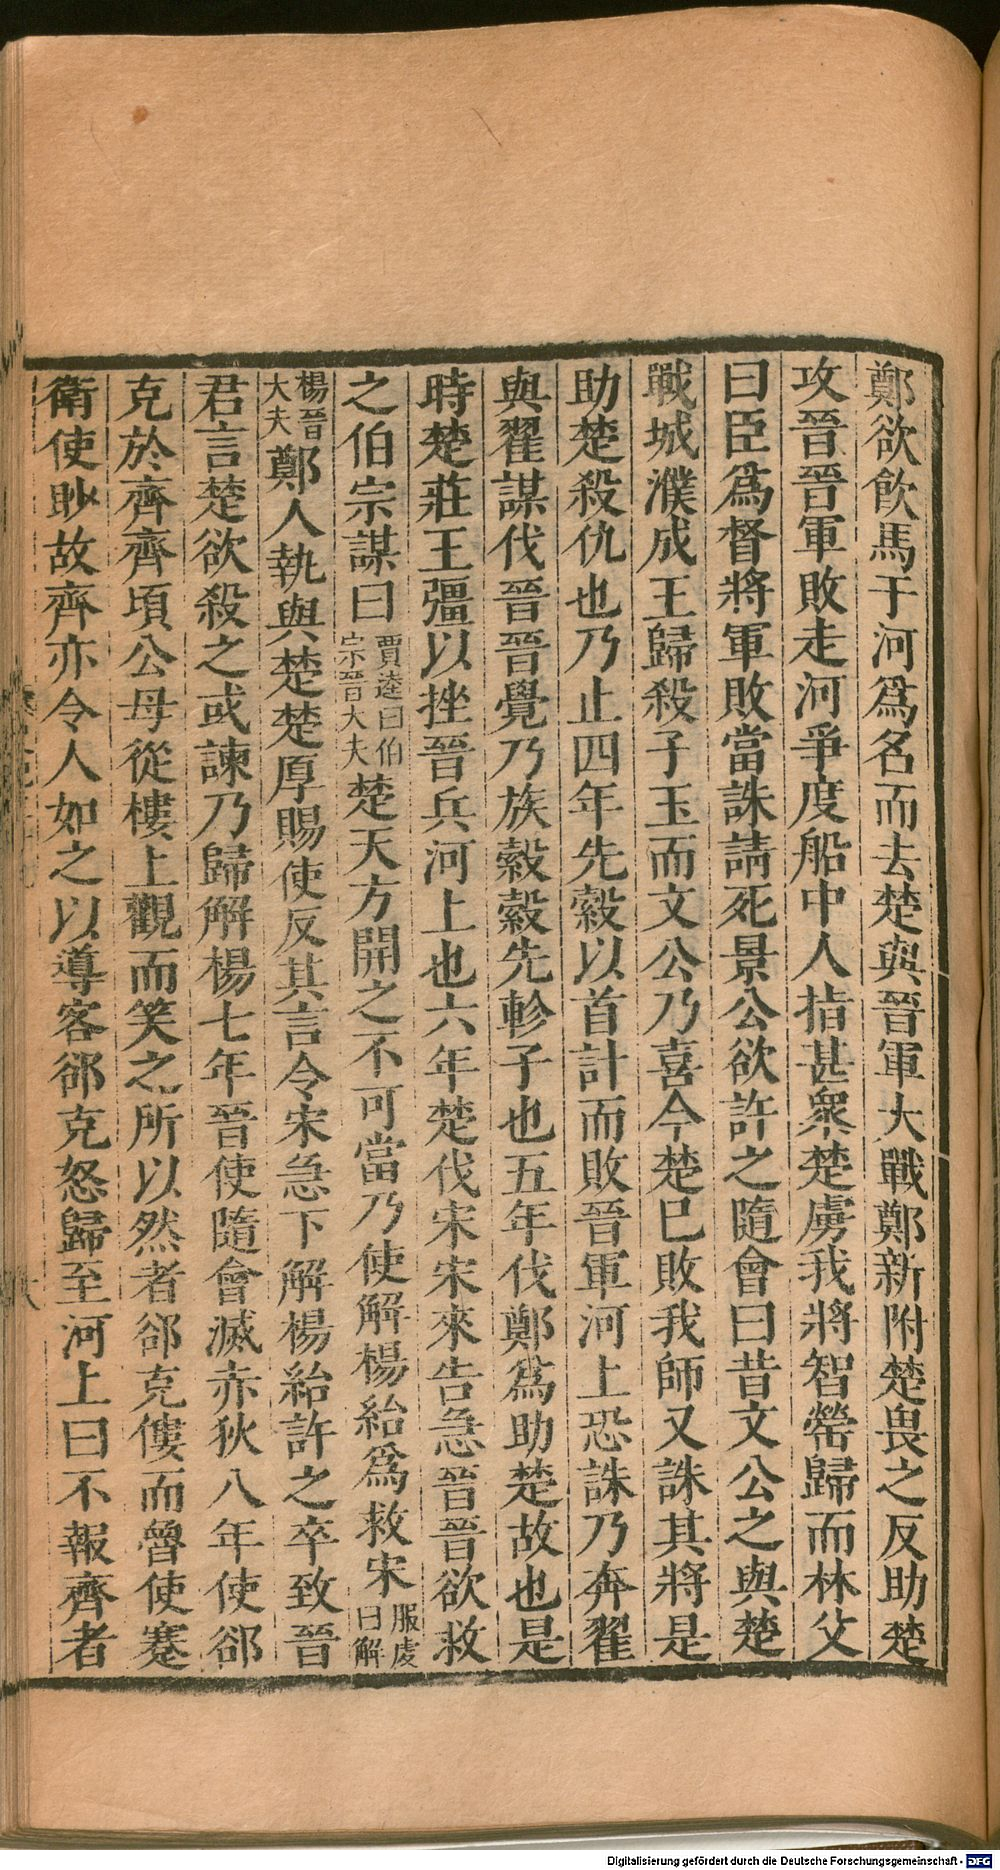 鄭欲飮馬于河爲名而去楚與晉軍大戰鄭新附楚畏之反助楚
攻晉晉軍敗走河爭度船中人指甚衆楚虜我將智罃歸而林父
曰臣爲督將軍敗當誅請死景公欲許之隨會曰昔文公之與楚
戰城濮成王歸殺子玉而文公乃喜今楚巳敗我師又誅其將是
助楚殺仇也乃止四年先縠以首計而敗晉軍河上恐誅乃奔翟
與翟謀伐晉晉覺乃族縠縠先軫子也五年伐鄭爲助楚故也是
時楚莊王彊以挫晉兵河上也六年楚伐宋宋來告急晉晉欲救
之伯宗謀曰賈逵曰伯宗晉大夫楚天方開之不可當乃使解楊紿爲救宋服虔曰解
楊晉大夫鄭人執與楚楚厚賜使反其言令宋急下解楊紿許之卒致晉
君言楚欲殺之或諫乃歸解楊七年晉使隨會滅赤狄八年使郤
克於齊齊頃公母從樓上觀而笑之所以然者郤克僂而魯使蹇
衛使眇故齊亦令人如之以導客郤克怒歸至河上曰不報齊者
Digitalisierung gefördert durch die Deutsche Forschungsgemeinschaft - DFG